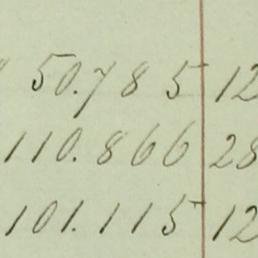 50.785 12
110.866 28
101.115 12